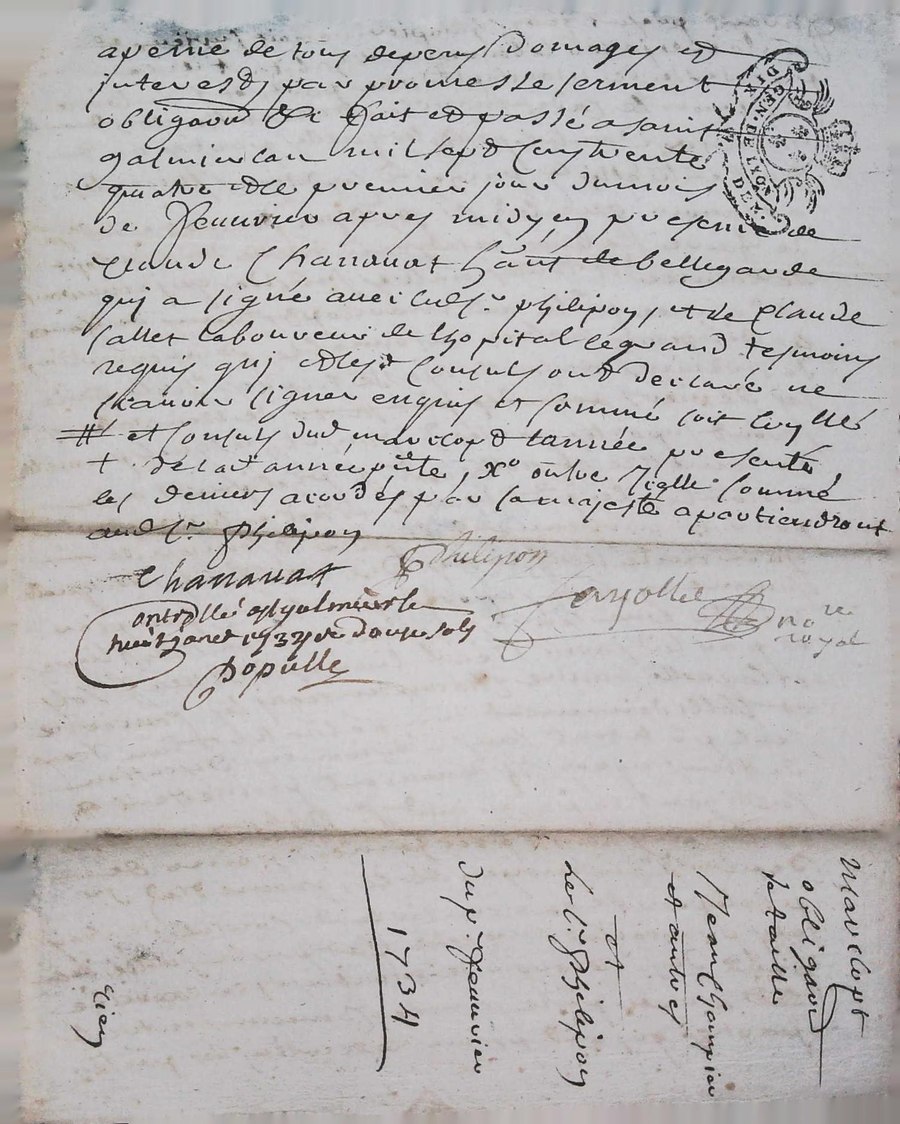 apeine de tous depens Domages et
interests par promesse serment
obligaon &c fait et passé a saint
galmier lan mil sept Cens trente
quatre et le premier jour du mois
de Jeanvier apres midy, en presence de
Claude Chanavat hant de bellegarde
qui a signé avec led sr philipon, et de Claude
laboureur de lhopital le grand tesmoins
requis qui et les Consuls ont declaré ne
scavoir signer enquis et sommé soit
# et Consuls dud marclopt lannée presente
+ de lad année pnte, Xo outre icelle somme
les deniers acordés par sa majesté apartiendront
aud sr philipon
Chanavat
Philipon
Fayolle
nore
royal
ontrollé a st galmier le
huit janer 1734 douze sols
Populle
DIX. GEN. DE LYON
DEN.
Marclopt
obligaon
de taille
et autres
et
Le sr Philipon
du pr Jeanvier
1734